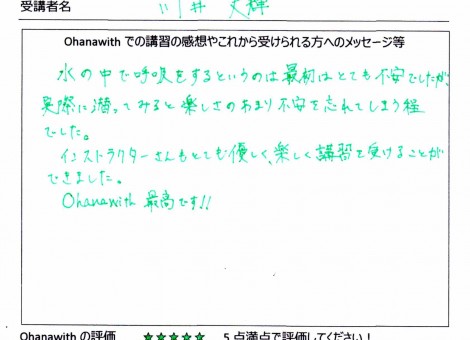 受講者名
Ohanawith での講習の感想やこれから受けられる方へのメッセージ等
水の中で呼吸をするというのは最初はとても不安でしたが、
実際に潜ってみると楽しさのあまり不安を忘れてしまう程
でした。
インストラクターさんもとても優しく、楽しく講習を受けることが
できました。
Ohanawith 最高です!!
Ohanawith の評価 ★★★★★ 5点満点で評価してください！